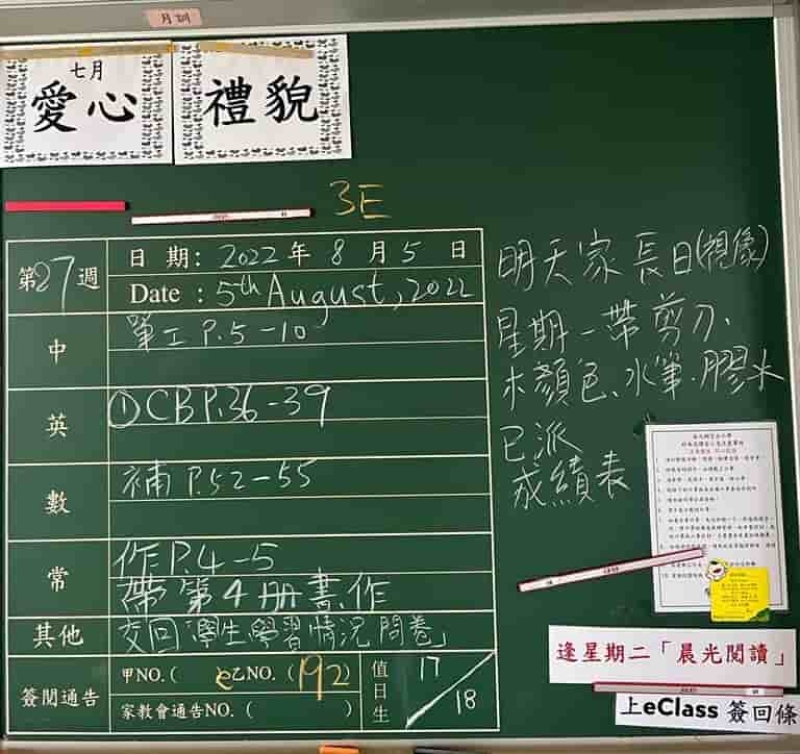 月訓
七月
愛心
禮貌
3E
第27週
日期：2022年8月5日
Date : 5th August, 2022
中
單工 P.5-10
英
①CB P.36-39
數
補 P.52-55
常
作 P.4-5
帶第4冊書、作
其他
交回「學生學習情況問卷」
簽閱通告
甲NO. (
乙NO. (192)
家教會通告NO. ( )
值日生
17/18
明天家長日(視像)
星期一帶剪刀、
木顏色、水筆、膠水
已派
成績表
逢星期二「晨光閱讀」
上eClass 簽回條